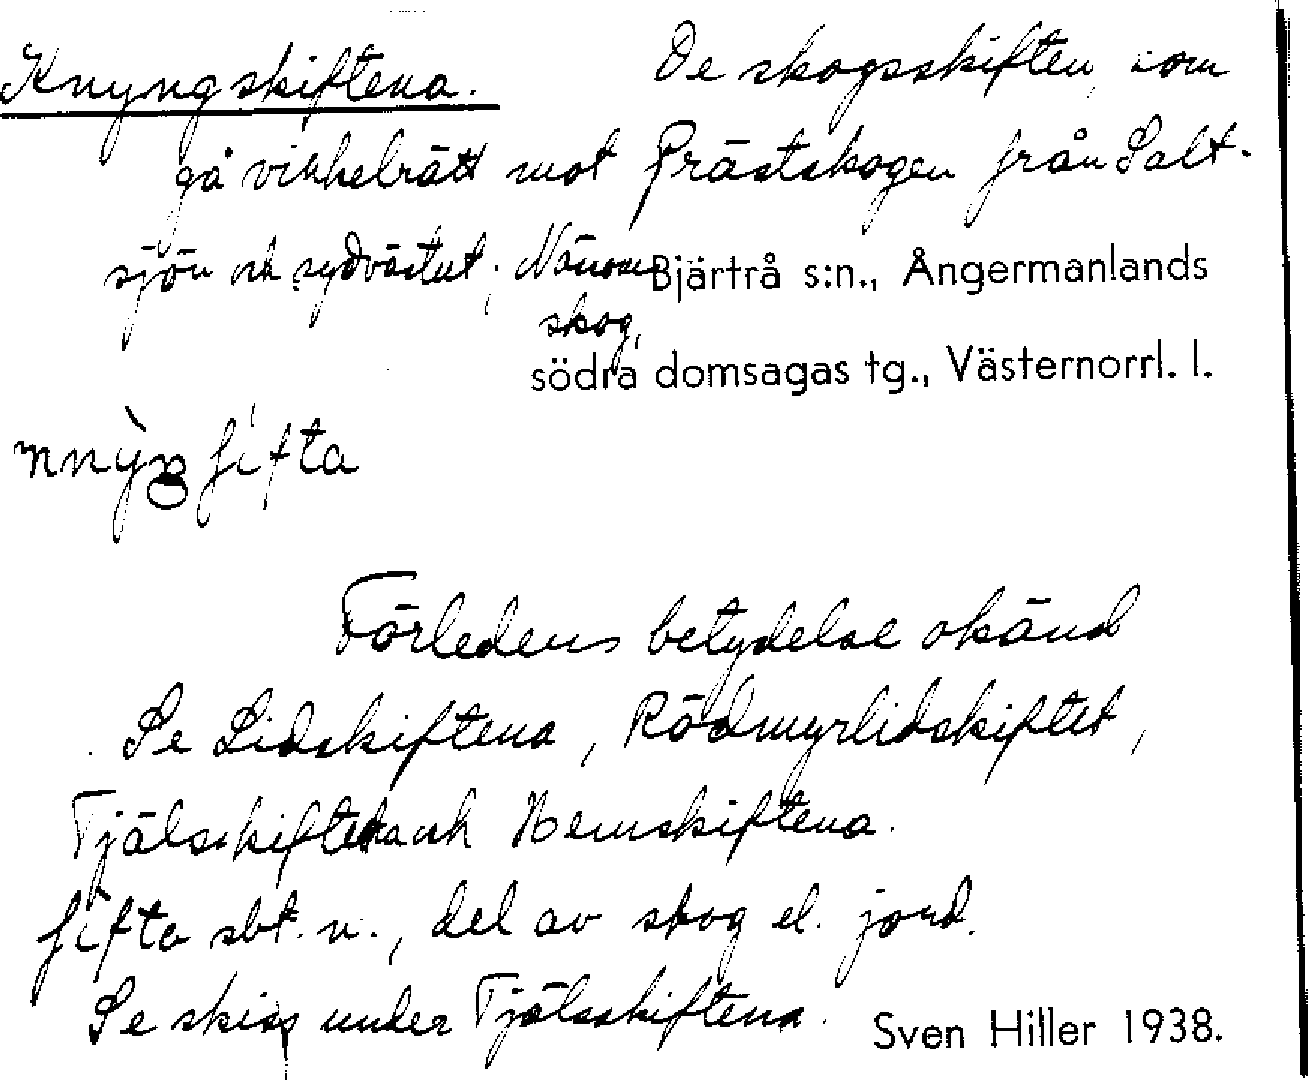 Knyngskiftena. De skogsskiften, som
gå vinkelrätt mot Prästskogen från Salt-
sjön och sydvästut; Bjärtrå s:n., Ångermanlands
skog,
södra domsagas tg., Västernorrl. l.
Förledens betydelse okänd
Se Lidskiftena, Rödmyrlidskiftet,
Tjälsskiftena och Hemskiftena.
ʃifta sbt. n., del av skog el. jord.
Se skiss under Tjälsskiftena. Sven Hiller 1938.